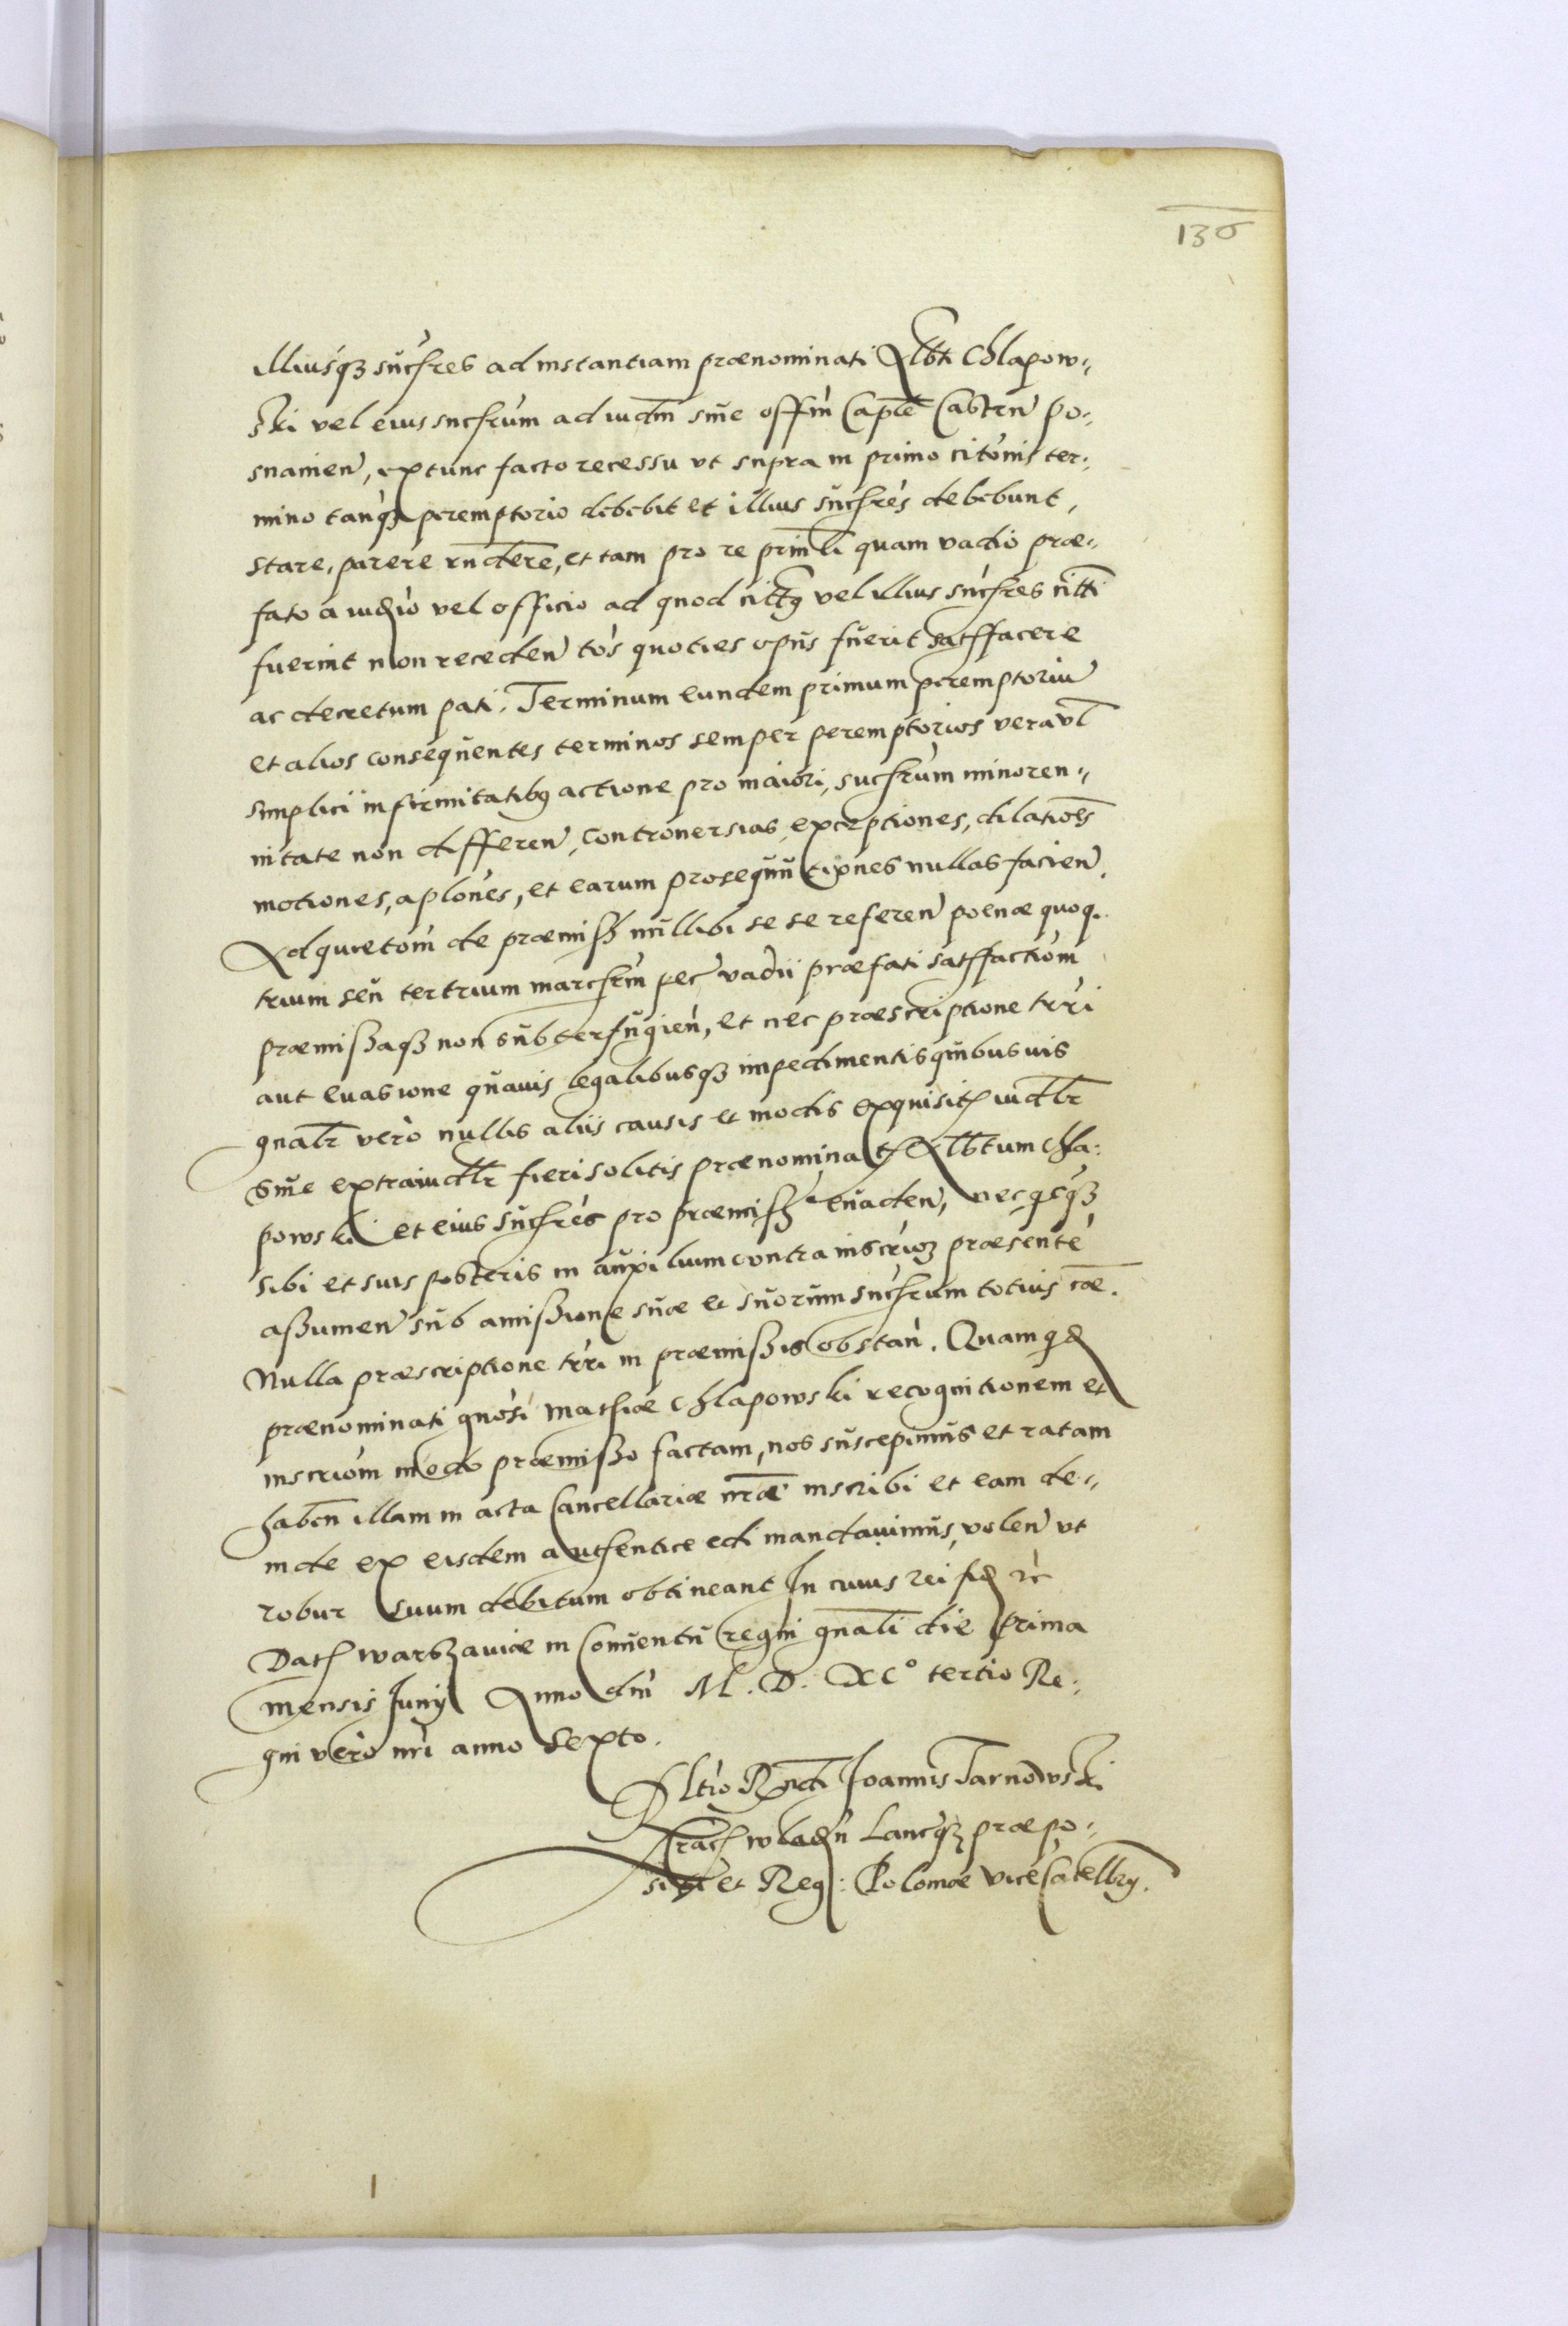 130
illiusq₃ sucħres ad instantiam prænominati Albti Chlapow⸗
ski vel eius sucħrum ad iudm̄ siue offm̄ Caplē Castren̄ po⸗
snanien̄, extunc facto recessu vt supra in primo citōnis ter⸗
mino tanq̄₃ peremptorio debebit et illius sucħres debebunt,
stare, parere rn̄dere, et tam pro re prinl̄i quam vadio præ⸗
fato a iudio vel officio ad quod citt₉ vel illius sucħres citti
fuerint non receden̄ tōs quoties opus fuerit satffacere
ac decretum pati. Terminum eundem primum peremptoriū
et alios consequentes terminos semper peremptorios vera vl̄
simplici infirmitatib₉ actione pro maiori, sucħrum minoren⸗
nitate non differen̄, controuersias, exceptiones, dilatiōes
motiones, aplōnes, et earum prosequutiones nullas facien̄.
Ad quietōm de præmiss nullibi se se referen̄ poenæ quoq.
trium seu ter trium marcħrm pec̄ vadii præfati satffactiōm
præmissaq₃ non subterfugien̄, et nec præscriptione trr̄i
aut euasione quauis legalibusq₃ impedimentis quibusuis
gnalr̄ vero nullis aliis causis et modis exquisit iudlr̄
siue extraiudlr̄ fieri solitis prænominat Albtum Chla⸗
powski et eius sucħres pro præmiss euaden̄, nec qcq₃
sibi et suis posteris in auxilium contra inscrio₃ præsentē
assumen̄ sub amissione suæ et suorum sucħrum totius cæ.
Nulla præscriptione trr̄i in præmissis obstan̄. Quam qd
prænominati gnōsi Mathiæ Chlapowski recognitionem et
inscriōm modo præmisso factam, nos suscepimus et ratam
haben̄ illam in acta Cancellariæ nr̄æ inscribi et eam de⸗
inde ex eisdem authentice edi mandauimus, volen̄ vt
robur suum debitum obtineant In cuius rei fid rc̄
Dat Warszauiæ in Conuentu regni gnali die prima
mensis Junij Anno dni M. D. XCº tertio Re⸗
gni vero nr̄i anno Sexto.
Rltio Rndi Joannis Tarnowski
Crac wladn̄ Lancq₃ præpo⸗
siti et Reg: Poloniæ viceCacellrij.